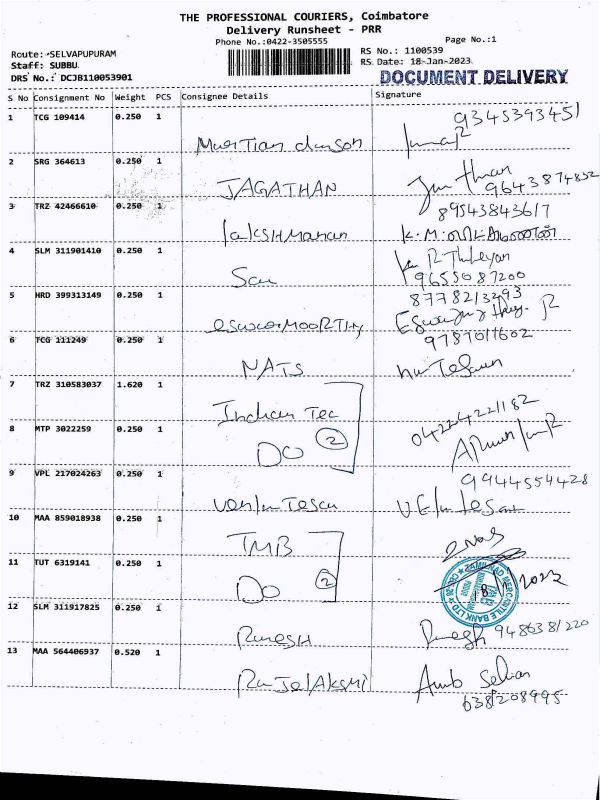 THE PROFESSIONAL COURIERS, Coimbatore
Delivery Runsheet - PRR
Phone No.:0422-3505555
Page No.:1
Route: SELVAPUPURAM
RS No.: 1100539
Staff: SUBBU
RS Date: 18-Jan-2023
DRS No.: DCJB110053901
DOCUMENT DELIVERY
S No Consignment No Weight PCS Consignee Details Signature
1 TCG 109414 0.250 1 9345393451
2 SRG 364613 0.250 1 JAGATHAN 9643874852
3 TRZ 42466610 0.250 1 lakshmanan 89543843617
K.M.
4 SLM 311901410 0.250 1 Sau
9655087200
5 HRD 399313149 0.250 1 eswarMOORTHy 8778213293
9787011602
6 TCG 111249 0.250 1 NATS
7 TRZ 310583037 1.620 1 Indian Tec
04224221182
8 MTP 3022259 0.250 1 DO 2
9 VPL 217024263 0.250 1 9944554428
10 MAA 859018938 0.250 1 TMB
11 TUT 6319141 0.250 1 DO 2
TAMILNAD MERCANTILE BANK LTD
12 SLM 311917825 0.250 1 RameSH
13 MAA 564406937 0.520 1 RajelAksmi Anb Selvan
638208995